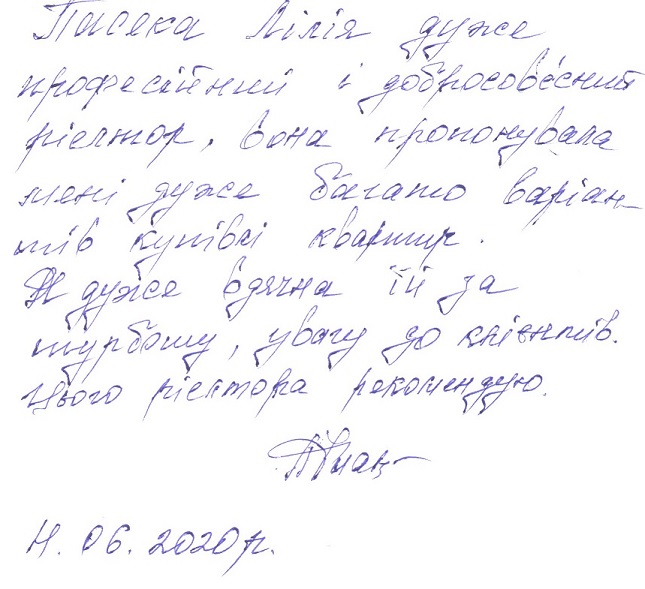 Пасека Лілія дуже
професійний і добросовєсний
рієлтор, вона пропонувала
мені дуже багато варіан-
тів купівлі квартир.
Я дуже вдячна їй за
турботу, увагу до клієнтів.
Цього рієлтора рекомендую.
06.2020р.